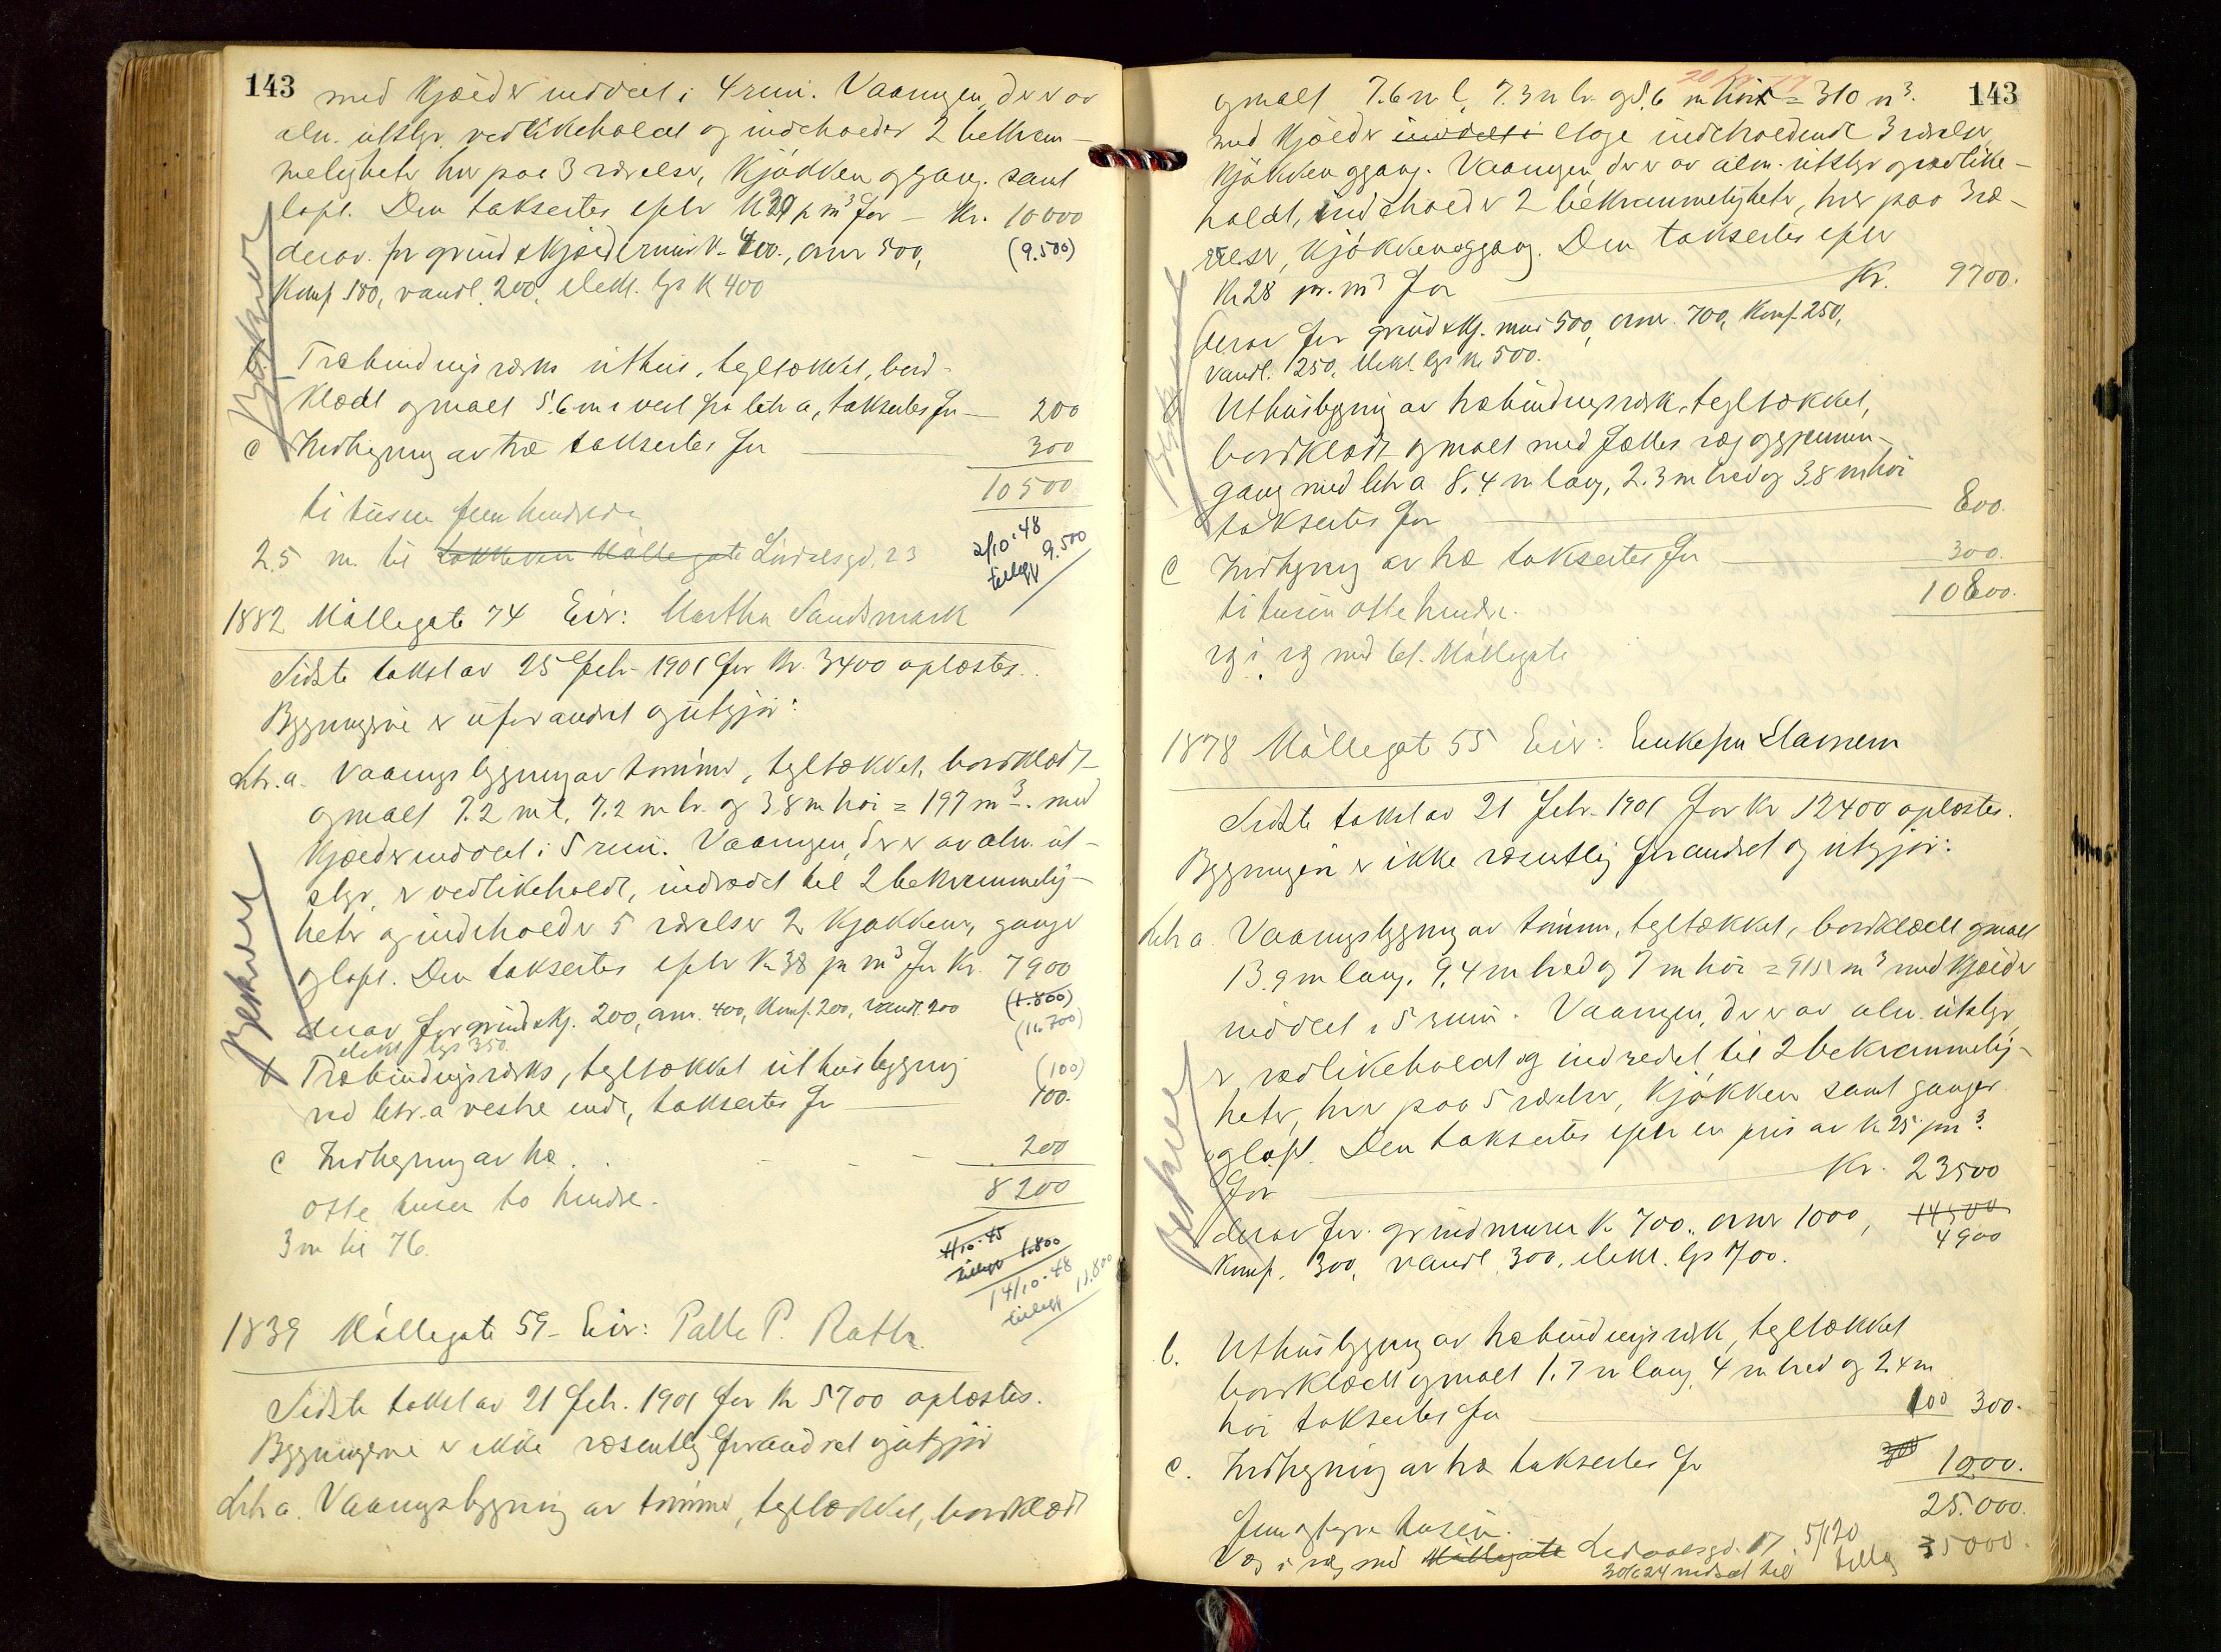 143
med Kjælder inddelt i 4 rum. Vaaningen, der er av
alm. utstyr, vedlikeholdt og indeholder 2 bekvem-
meligheter hver paa 3 værelser, Kjøkken og gang samt
loft. Den taksertes efter Kr 39 pr m³ for – Kr. 10000
derav for grund & Kjældermur Kr. 400., ovner 500, (9.500)
Komf 500, vandl. 200, elekt. lys K 400
Træbindingsverks uthus, tegltækket, bord-
klædt og malt 5.6 m i vest fra litr a, taksertes for – 200
c Indhegning av træ taksertes for 300
10500
ti tusen fem hundrede
2/10-48
tillegg 9.500
2.5 m. til Møllegate Lindalsgd. 23
1882 Møllegate 74 Eier: Martha Sandsmark
Sidste takst av 25 Febr. 1901 for Kr. 3400 oplæstes.
Bygningerne er uforandret og utgjør:
Litr. a. Vaaningsbygning av tømmer, tegltækket, bordklædt
og malt 7.2 m l, 7.2 m br. og 3.8 m høi = 197 m³. med
Kjælder inddelt i 5 rum. Vaaningen, der er av alm. ut-
styr, er vedlikeholdt, indredet til 2 bekvemmelig-
heter og indeholder 5 værelser 2 Kjøkkener, ganger
og loft. Den taksertes efter Kr 38 pr m³ for Kr. 7900
derav for grund & Kj. 200, ovn. 400, Komf. 200, vandl. 200 (1.800)
elekt lys 350. (11.700)
b Træbindingsverks, tegltækket uthusbygning (100)
ved litr. a vestre ende, taksertes for 100.
c Indhegning av træ . . 200
8200
otte tusen to hundre.
3 m til 76.
4/10-45
tillegg 1.800
14/10-48
tillegg 11.800
1839 Møllegate 59 – Eier: Palle P. Rath
Sidste takst av 21 Febr. 1901 for Kr 5700 oplæstes.
Bygningerne er ikke væsentlig forandret og utgjør
Litr a. Vaaningsbygning av tømmer, tegltækket, bordklædt
Beskrevet
Beskrevet
143
og malt 7.6 m l, 7.3 m br. og 5.6 m høi = 310 m³.
med Kjælder inddelt i etage indeholdende 3 værelser
Kjøkken og gang. Vaaningen, der er av alm. utstyr og vedlike-
holdt, indeholder 2 bekvemmeligheter, hver paa 3 væ-
relser, Kjøkken og gang. Den taksertes efter
Kr 28 pr. m³ for Kr. 9700.
derav for grund & Kj. mur 500, ovner. 700, Komf. 250,
vandl. 250, elekt. lys Kr 500.
Uthusbygning av træbindingsverk, tegltækket,
bordklædt og malt med fælles væg og gjennem-
gang med litr a 8.4 m lang, 2.3 m bred og 3.8 m høi
taksertes for 800.
c Indhegning av træ taksertes for 300.
10800.
ti tusen otte hundre.
væg i væg med bel. Møllegate
1878 Møllegat 55 Eier: Enkefru Stamnem
Sidste takst av 21 Febr. 1901 for Kr 12400 oplæstes.
Bygningen er ikke væsentlig forandret og utgjør:
Litr a. Vaaningsbygning av tømmer, tegltækket, bordklædt og malt
13.9 m lang, 9.4 m bred og 7 m høi = 915 m³ med Kjælder
inddelt i 5 rum. Vaaningen, der er av alm. utstyr,
er vedlikeholdt og indredet til 2 bekvemmelig-
heter, hver paa 5 værelser, Kjøkken samt ganger
og loft. Den taksertes efter en pris av Kr 25 pr m³.
For Kr. 23500
derav for. grundmurer Kr 700., ovner 1000, 14500
Komf. 300, vandl. 300, elekt. lys 700. 4900
b. Uthusbygning av træbindingsverk, tegltækket
bordklædt og malt 1.7 m lang, 4 m bred og 2.4 m
høi taksertes for 100 300.
c. Indhegning av træ taksertes for 300 1200.
25.000.
fem og tyve tusen.
Væg i væg med Møllegate Ledaalsgd. 17. 5/120
tillæg 35000.
30/6 24 nedsat til
Beskrevet
Beskrevet